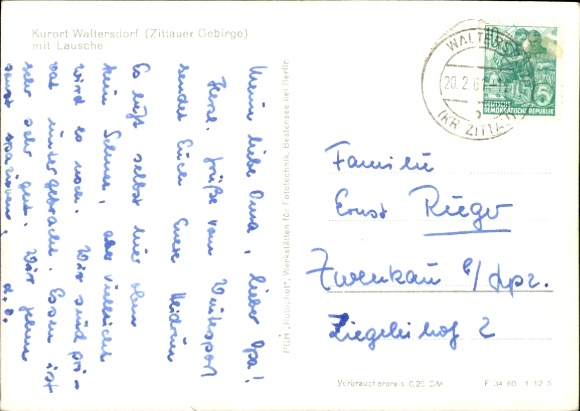 Kurort Waltersdorf (Zittauer Gebirge)
mit Lausche
Meine liebe Oma, lieber Opa!
Herzl. Grüße vom Wintersport
sendet Euch Eure Heidrun
Es liegt selbst hier oben
kein Schnee, aber vielleicht
wird es noch. Wir sind pri-
vat untergebracht. Essen ist
sehr sehr gut. Wir gehen
sonst spazieren,
PGH „Rotophot", Werkstätten für Fototechnik, Bestensee bei Berlin
WALTERSD
20.2.61
b
(KR ZITTAU)
DEUTSCHE
DEMOKRATISCHE REPUBLIK
5
Familie
Ernst Rieger
Zwenkau b/Lpz.
Ziegeleihof 2
Verbraucherpreis 0,25 DM
F 34 60 1 12 5